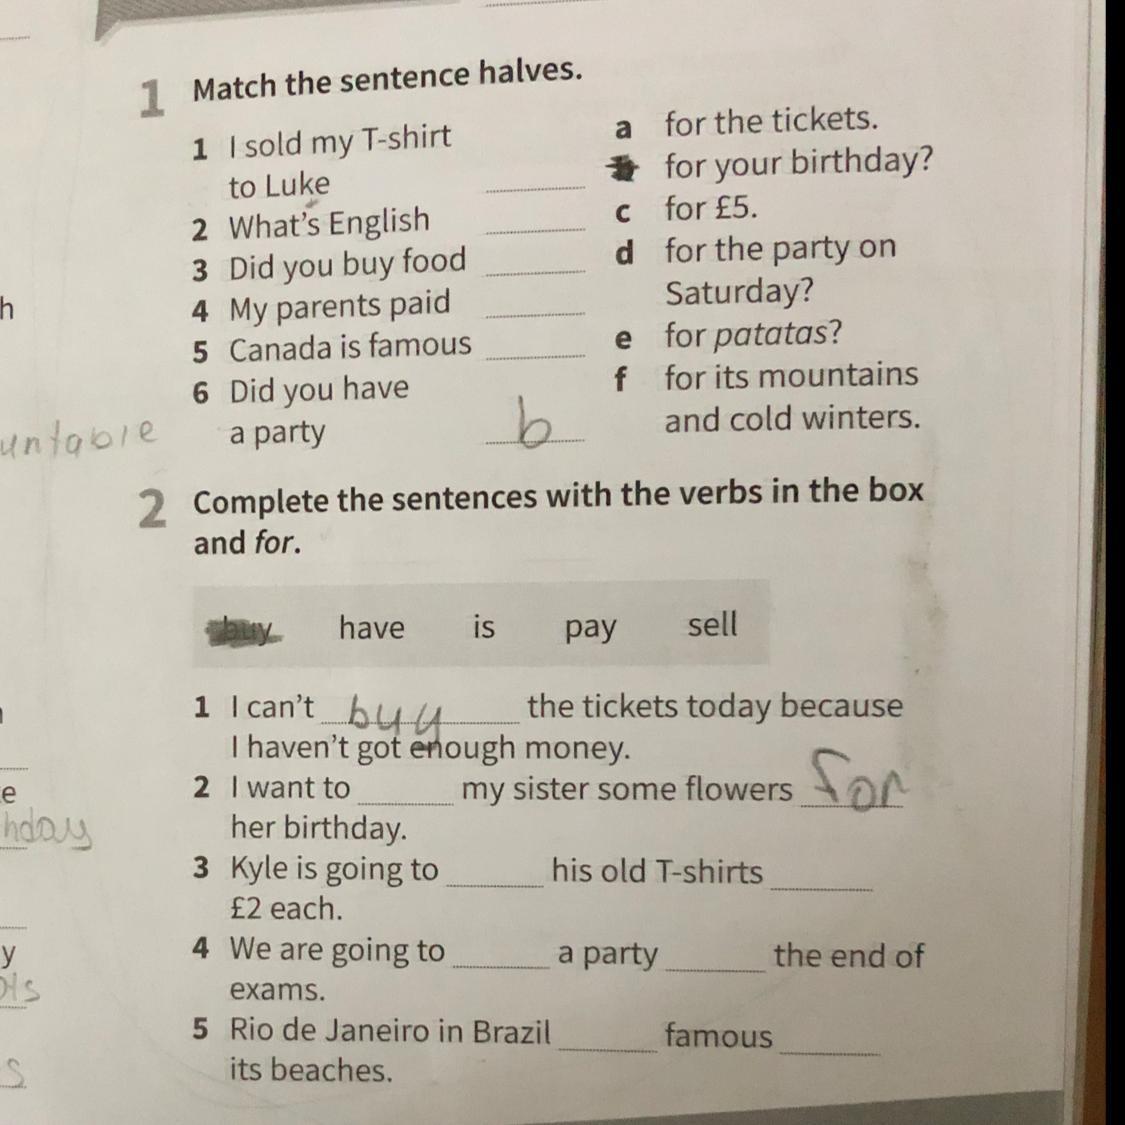 1 Match the sentence halves.
1 I sold my T-shirt
to Luke
2 What's English
3 Did you buy food
4 My parents paid
5 Canada is famous
6 Did you have
a party b
a for the tickets.
for your birthday?
c for £5.
d for the party on
Saturday?
e for patatas?
f for its mountains
and cold winters.
2 Complete the sentences with the verbs in the box
and for.
buy have is pay sell
1 I can't buy the tickets today because
I haven't got enough money.
2 I want to my sister some flowers for
her birthday.
3 Kyle is going to his old T-shirts
£2 each.
4 We are going to a party the end of
exams.
5 Rio de Janeiro in Brazil famous
its beaches.